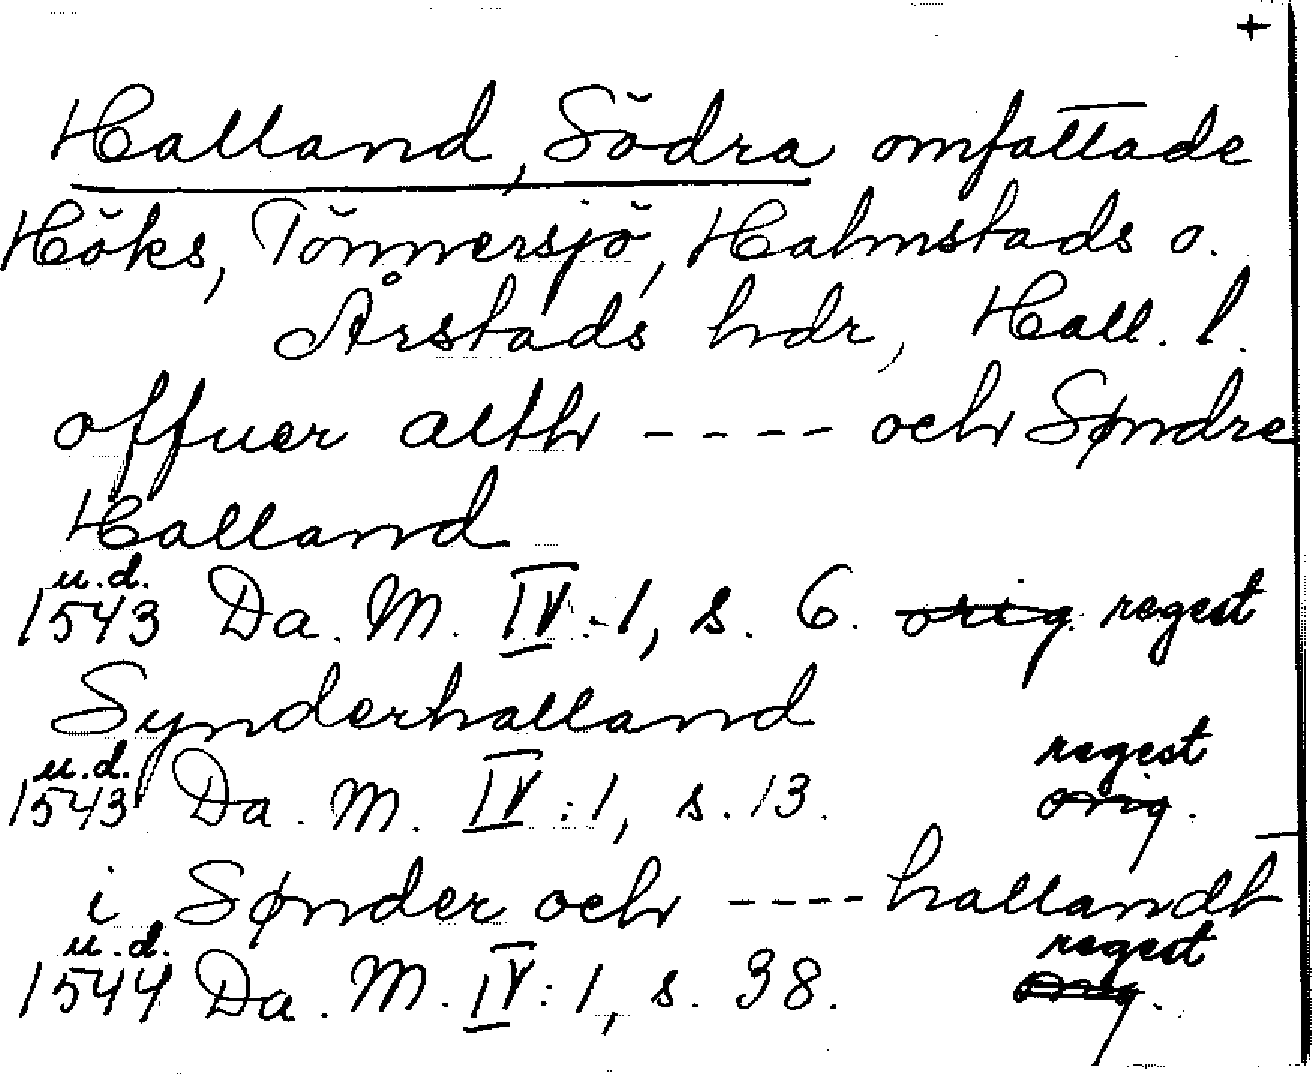 +
Halland, Södra omfattade
Höks, Tönnersjö, Halmstads o.
Årstads hdr, Hall. l.
offuer alth ---- och Søndre
Halland
u.d.
1543 Da. M. IV:1, s. 6. orig. regest
Synderhalland
u.d. regest
1543 Da. M. IV:1, s. 13. orig.
i Sønder och ---- hallandt
u.d. regest
1544 Da. M. IV:1, s. 38. orig.